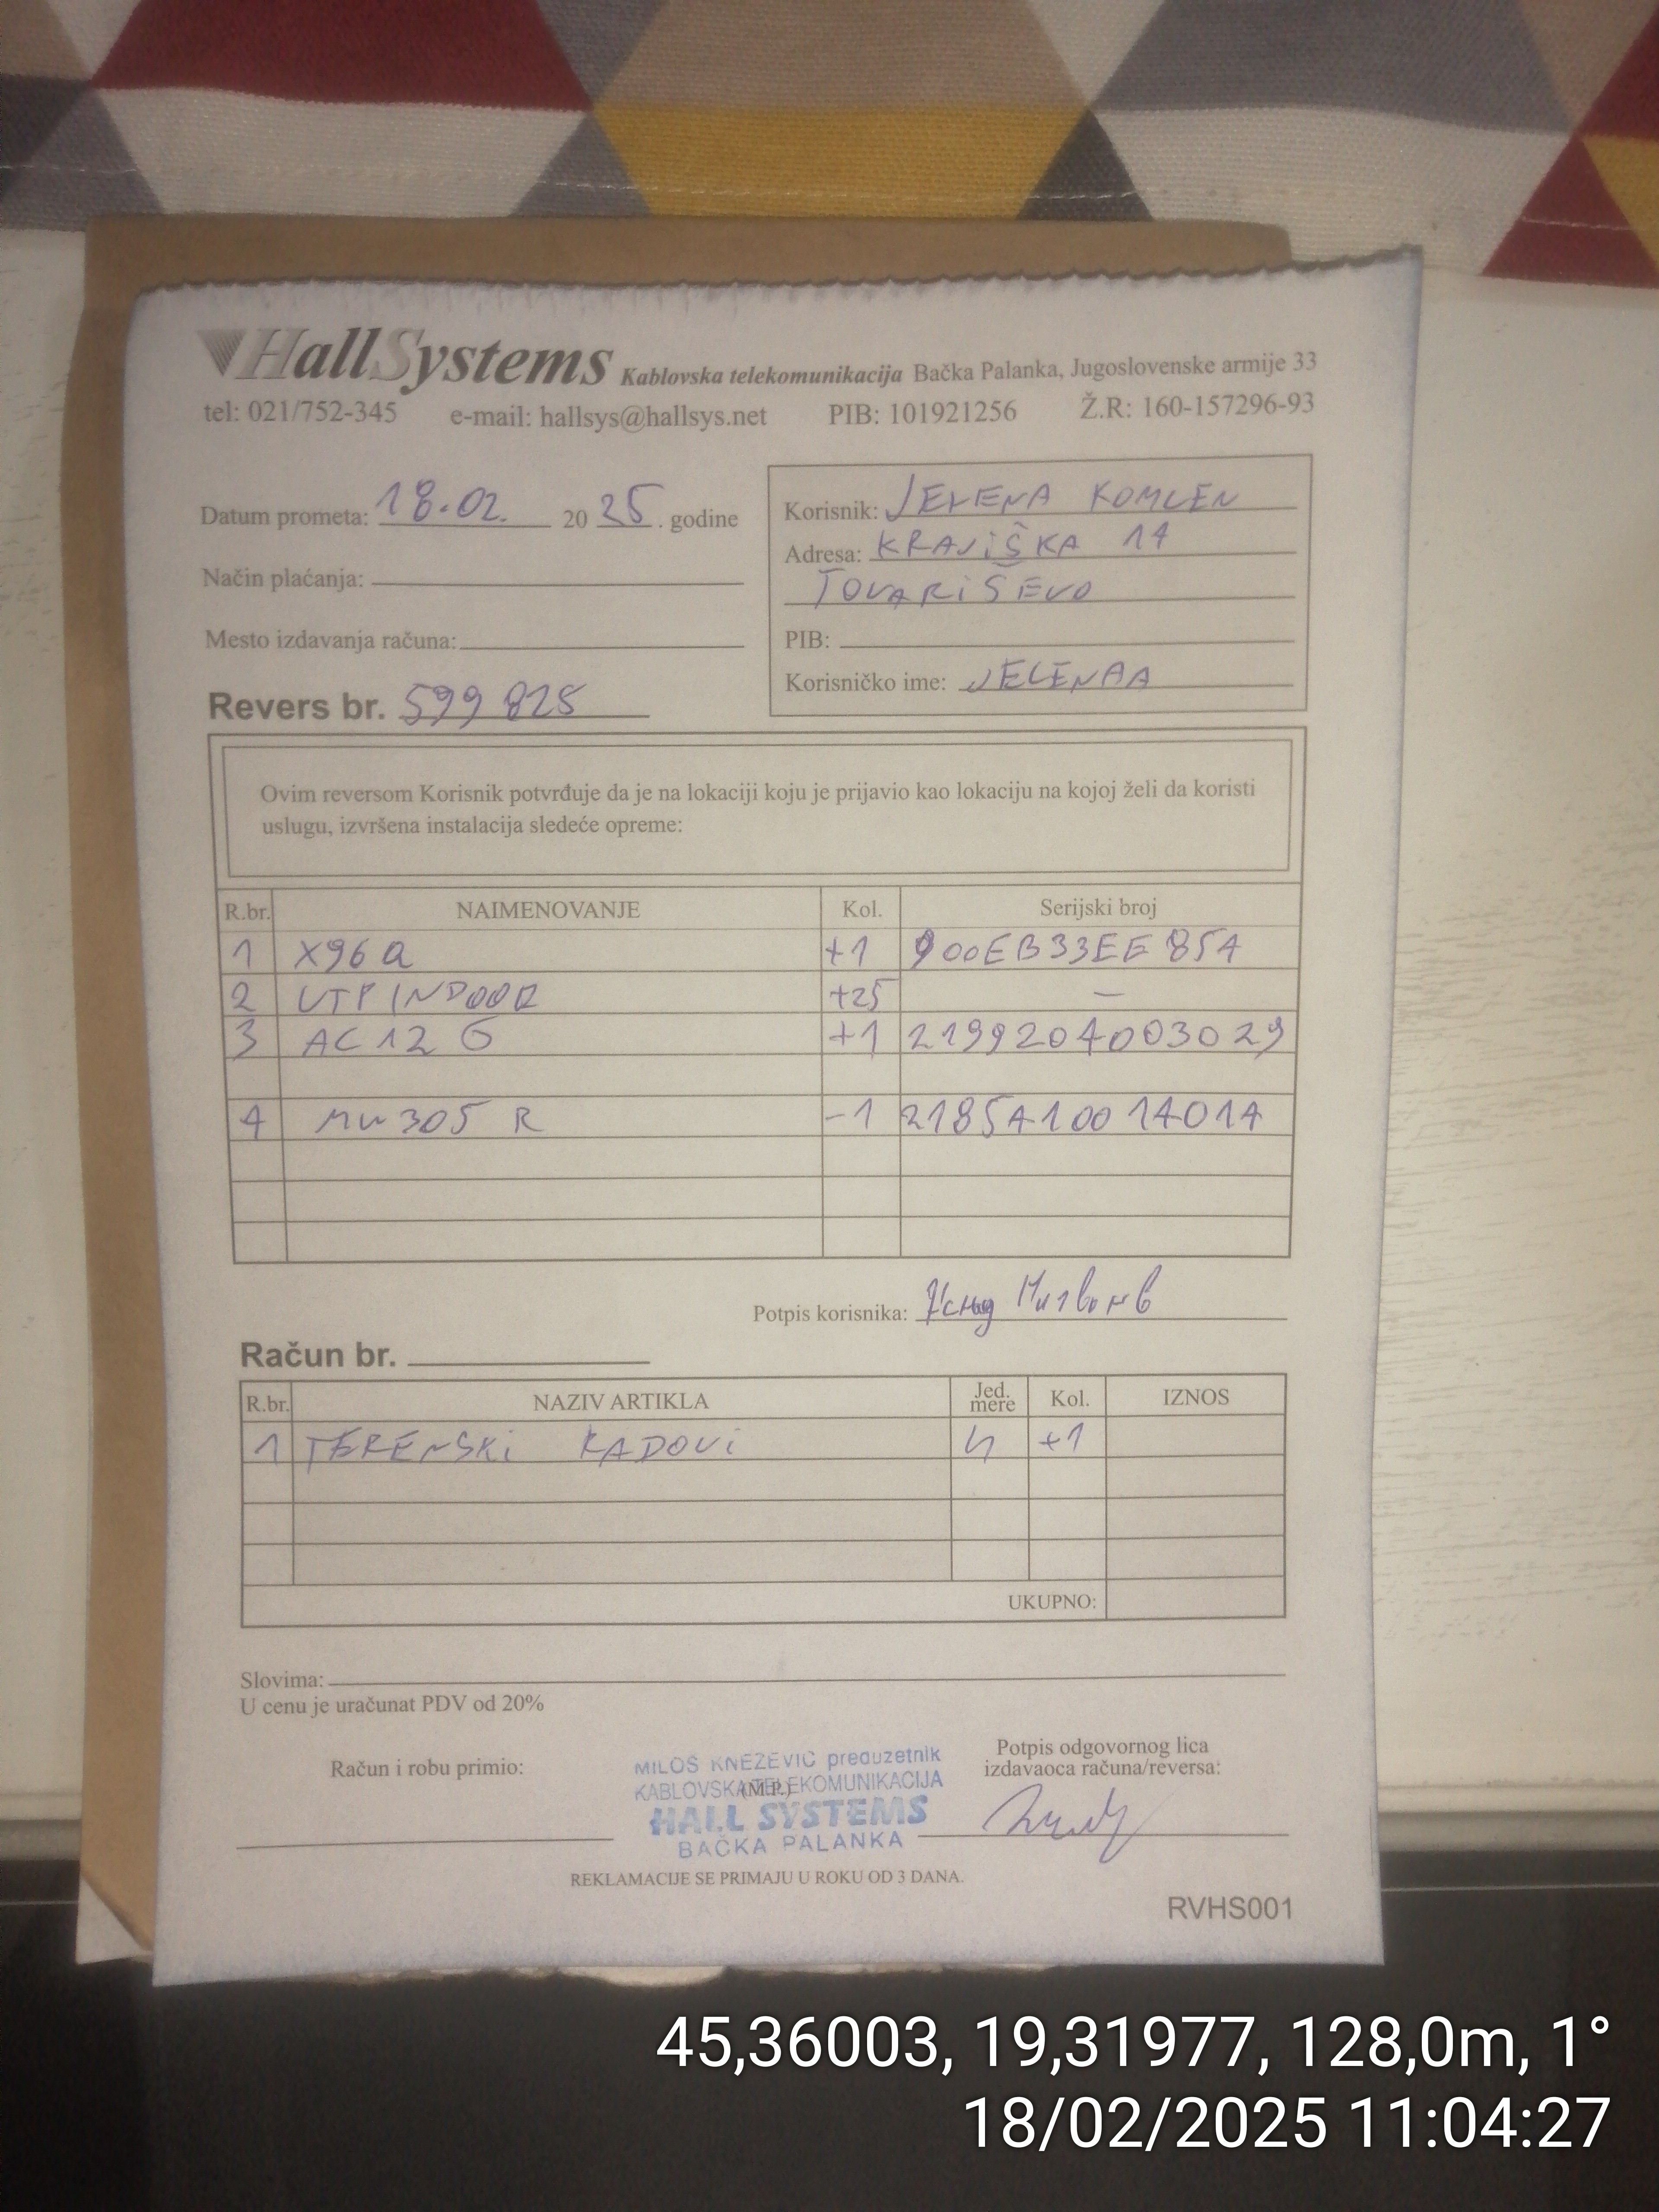 HallSystems Kablovska telekomunikacija Bačka Palanka, Jugoslovenske armije 33
tel: 021/752-345 e-mail: hallsys@hallsys.net PIB: 101921256 Ž.R: 160-157296-93
Datum prometa: 18.02. 2025. godine
Način plaćanja:
Mesto izdavanja računa:
Revers br. 599 825
Korisnik: JELENA KOMLEN
Adresa: KRAJiŠKA 14
TOVARiŠEVO
PIB:
Korisničko ime: JELENAA
Ovim reversom Korisnik potvrđuje da je na lokaciji koju je prijavio kao lokaciju na kojoj želi da koristi
uslugu, izvršena instalacija sledeće opreme:
R.br. NAIMENOVANJE Kol. Serijski broj
1 X96Q +1 900EB33EE854
2 UTP INDOOR +25 —
3 AC12 G +1 2199204003029
4 MW305 R -1 2185A10014014
Potpis korisnika:
Račun br.
R.br. NAZIV ARTIKLA Jed. mere Kol. IZNOS
1 TERENSKi RADOVi h +1
UKUPNO:
Slovima:
U cenu je uračunat PDV od 20%
Račun i robu primio:
MILOŠ KNEŽEVIĆ preduzetnik
KABLOVSKA TELEKOMUNIKACIJA
(M.P.)
HALL SYSTEMS
BAČKA PALANKA
Potpis odgovornog lica
izdavaoca računa/reversa:
REKLAMACIJE SE PRIMAJU U ROKU OD 3 DANA.
RVHS001
45,36003, 19,31977, 128,0m, 1°
18/02/2025 11:04:27